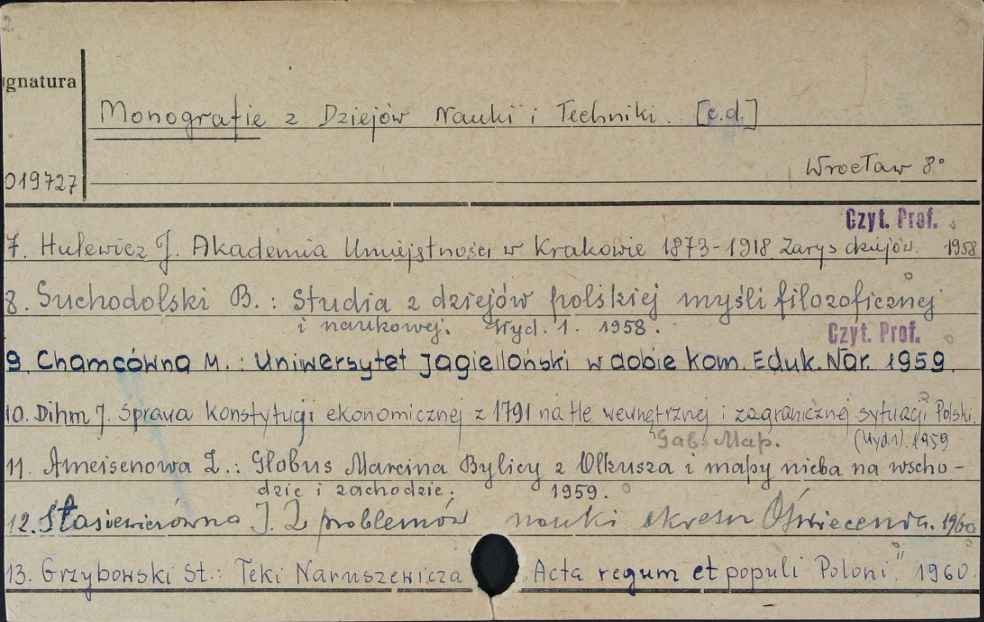 2
gnatura
Monografie z Dziejów Nauki i Techniki. [c.d.]
019727
Wrocław 8°
Czyt. Prof.
7. Hulewicz J. Akademia Umiejętności w Krakowie 1873-1918 Zarys dziejów. 1958
8. Suchodolski B.: Studia z dziejów polskiej myśli filozoficznej
i naukowej. Wyd. 1. 1958.
Czyt. Prof.
9. Chamcówna M.: Uniwersytet Jagielloński w dobie Kom. Eduk. Nar. 1959.
10. Dihm J. Sprawa konstytucji ekonomicznej z 1791 na tle wewnętrznej i zagranicznej sytuacji Polski.
Gab. Map. (Wyd 1). 1959
11. Ameisenowa Z.: Globus Marcina Bylicy z Olkusza i mapy nieba na wscho-
dzie i zachodzie. 1959.
12. Stasiewiczówna I. Z problemów nauki okresu Oświecenia. 1960
13. Grzybowski St.: Teki Naruszewicza „Acta regum et populi Poloni". 1960.